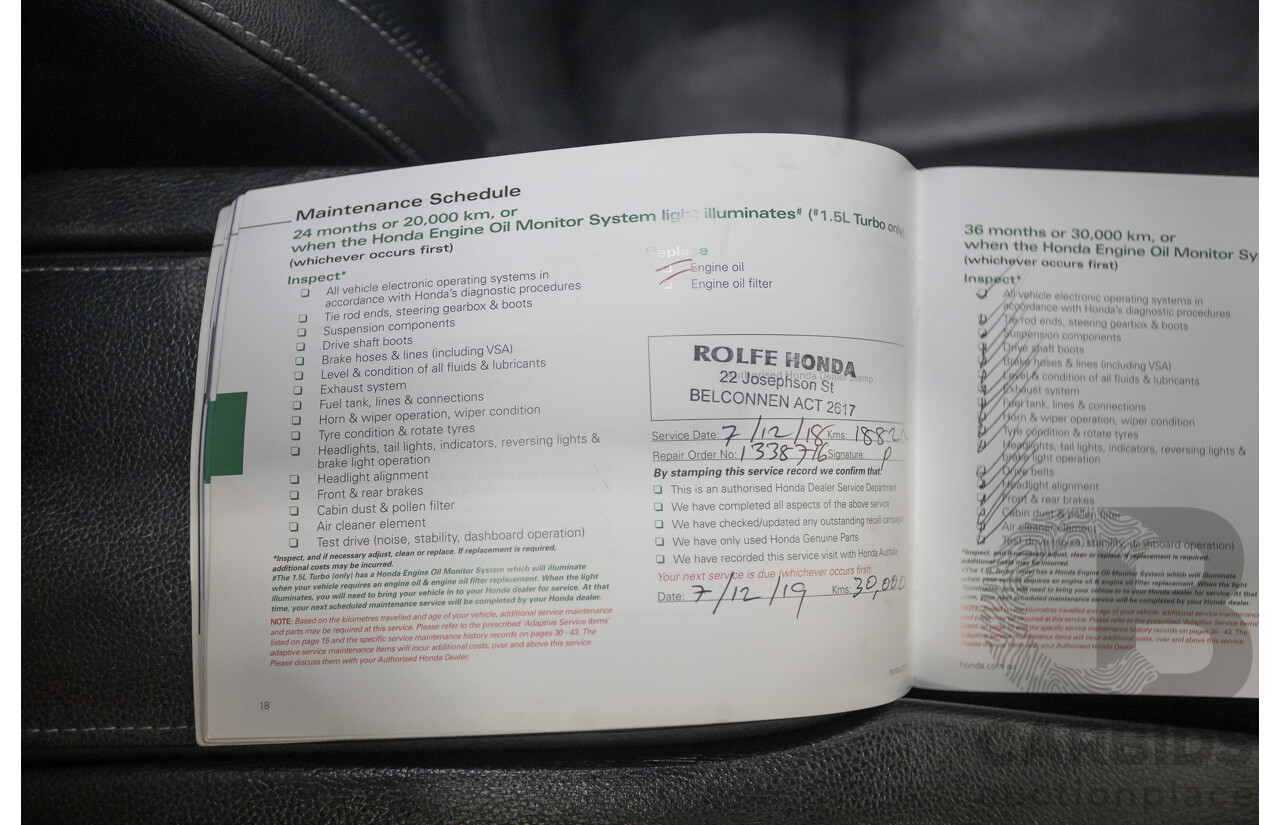 Maintenance Schedule
24 months or 20,000 km, or
when the Honda Engine Oil Monitor System light illuminates# (#1.5L Turbo only)
(whichever occurs first)
Inspect*
All vehicle electronic operating systems in
accordance with Honda's diagnostic procedures
Tie rod ends, steering gearbox & boots
Suspension components
Drive shaft boots
Brake hoses & lines (including VSA)
Level & condition of all fluids & lubricants
Exhaust system
Fuel tank, lines & connections
Horn & wiper operation, wiper condition
Tyre condition & rotate tyres
Headlights, tail lights, indicators, reversing lights &
brake light operation
Headlight alignment
Front & rear brakes
Cabin dust & pollen filter
Air cleaner element
Test drive (noise, stability, dashboard operation)
*Inspect, and if necessary adjust, clean or replace. If replacement is required,
additional costs may be incurred.
#The 1.5L Turbo (only) has a Honda Engine Oil Monitor System which will illuminate
when your vehicle requires an engine oil & engine oil filter replacement. When the light
illuminates, you will need to bring your vehicle in to your Honda dealer for service. At that
time, your next scheduled maintenance service will be completed by your Honda dealer.
NOTE: Based on the kilometres travelled and age of your vehicle, additional service maintenance
and parts may be required at this service. Please refer to the prescribed 'Adaptive Service Items'
listed on page 15 and the specific service maintenance history records on pages 30 - 43. The
adaptive service maintenance items will incur additional costs, over and above this service.
Please discuss them with your Authorised Honda Dealer.
18
Replace
Engine oil
Engine oil filter
ROLFE HONDA
Authorised Honda Dealer Stamp
22 Josephson St
BELCONNEN ACT 2617
Service Date: 7/12/18 Kms: 1882
Repair Order No: 1338716 Signature:
By stamping this service record we confirm that:
This is an authorised Honda Dealer Service Department
We have completed all aspects of the above service
We have checked/updated any outstanding recall campaign
We have only used Honda Genuine Parts
We have recorded this service visit with Honda Australia
Your next service is due (whichever occurs first)
Date: 7/12/19 Kms: 30,000
36 months or 30,000 km, or
when the Honda Engine Oil Monitor Sy
(whichever occurs first)
Inspect*
All vehicle electronic operating systems in
accordance with Honda's diagnostic procedures
Tie rod ends, steering gearbox & boots
Suspension components
Drive shaft boots
Brake hoses & lines (including VSA)
Level & condition of all fluids & lubricants
Exhaust system
Fuel tank, lines & connections
Horn & wiper operation, wiper condition
Tyre condition & rotate tyres
Headlights, tail lights, indicators, reversing lights &
brake light operation
Drive belts
Headlight alignment
Front & rear brakes
Cabin dust & pollen filter
Air cleaner element
Test drive (noise, stability, dashboard operation)
*Inspect, and if necessary adjust, clean or replace. If replacement is required,
additional costs may be incurred.
#The 1.5L Turbo (only) has a Honda Engine Oil Monitor System which will illuminate
when your vehicle requires an engine oil & engine oil filter replacement. When the light
illuminates, you will need to bring your vehicle in to your Honda dealer for service. At that
time, your next scheduled maintenance service will be completed by your Honda dealer.
honda.com.au